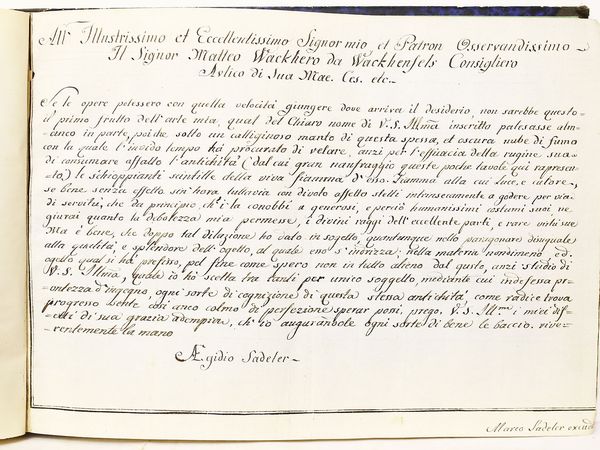 All' Illustrissimo et Eccellentissimo Signor mio, et Patron Osservandissimo
Il Signor Matteo Wackhero da Wackhenfels Consigliero
Avlico di Sua Mae. Ces. etc.
Se le opere potessero con quella velocità giungere dove arriva il desiderio, non sarebbe questo
il primo frutto dell'arte mia, qual del Chiaro nome di V. S. Illma inscritto palesasse alm=
=anco in parte, poi che sotto un calliginoso manto di questa spessa, et oscura nube di fumo
con la quale l'invido tempo ha procurato di velare, anzi per l'efficacia della rugine sua
di consumare affatto l'antichità (dal cui gran naufraggio queste poche tavole qui rapresen=
=tato) le schioppianti scintille della viva fiamma d'esso. Fiamma alla cui luce, e calore,
se bene senza effetto sin'hora tuttavia con divoto affetto stetti intensamente a godere per via
di servitù, che da principio, ch'i' la conobbi a generosi, e perciò humanissimi costumi suoi, ne
giurai quanto la debolezza mia permesse, i divini raggi dell'eccellente parti, e rare virtù sue
Ma è bene, che doppo tal dilatione ho dato in sogetto, quantunque nello paragonare disuguale
alla qualità e splendore dell'ogetto, al quale esso s'indrizza; nella materia nondimeno ed
ogetto qual si ha prefisso, pel fine come spero non in tutto alieno dal gusto, anzi studio di
V. S. Illma, quale io hò scelta tra tanti per unico soggetto, mediante cui indefessa pr=
=ontezza d'ingegno, ogni sorte di cognizione di questa stessa antichità, come radice trova
progresso sente così anco colmo di perfezione sperar possi, prego. V. S. Ill.mo i miei dif=
=etti di sua grazia adempiva, ch'io augurandole ogni sorte di bene le baccio. rive=
=rentemente la mano
Ægidio Sadeler
Marco Sadeler excudit